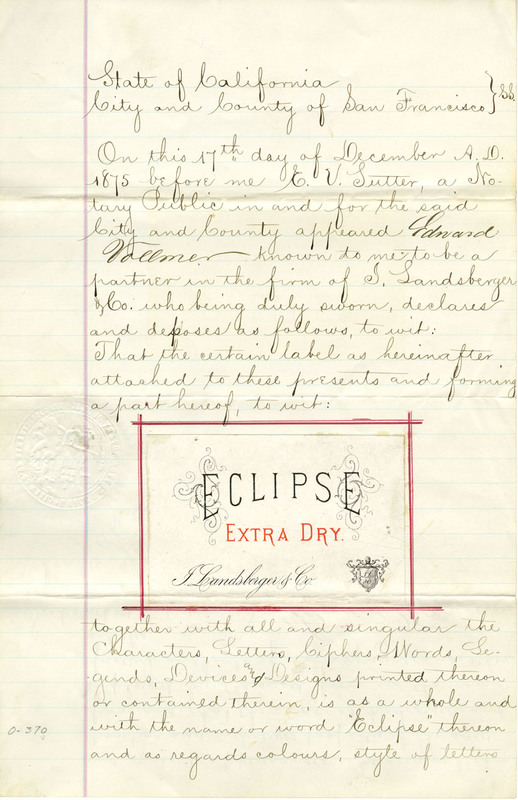 State of California
City and County of San Francisco } SS.
On this 17th day of December A.D.
1875 before me E. V. Sutter, a No-
tary Public in and for the said
City and County appeared Edward
Vollmer known to me to be a
partner in the firm of I. Landsberger
& Co. who being duly sworn, declares
and deposes as follows, to wit:
That the certain label as hereinafter
attached to these presents and forming
a part hereof, to wit:
ECLIPSE
EXTRA DRY.
I. Landsberger & Co
together with all and singular the
Characters, Letters, Ciphers, Words, Le-
gends, Devices and Designs printed thereon
or contained therein, is as a whole and
with the name or word "Eclipse" thereon
and as regards colours, style of letters
0-370